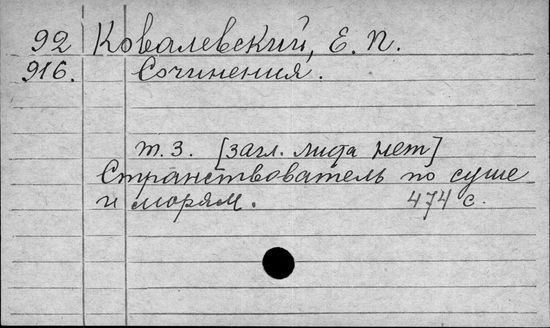 92 Ковалевский, Е. П.
916. Сочинения.
т. 3. [загл. листа нет]
Странствователь по суше
и морям. 474 с.